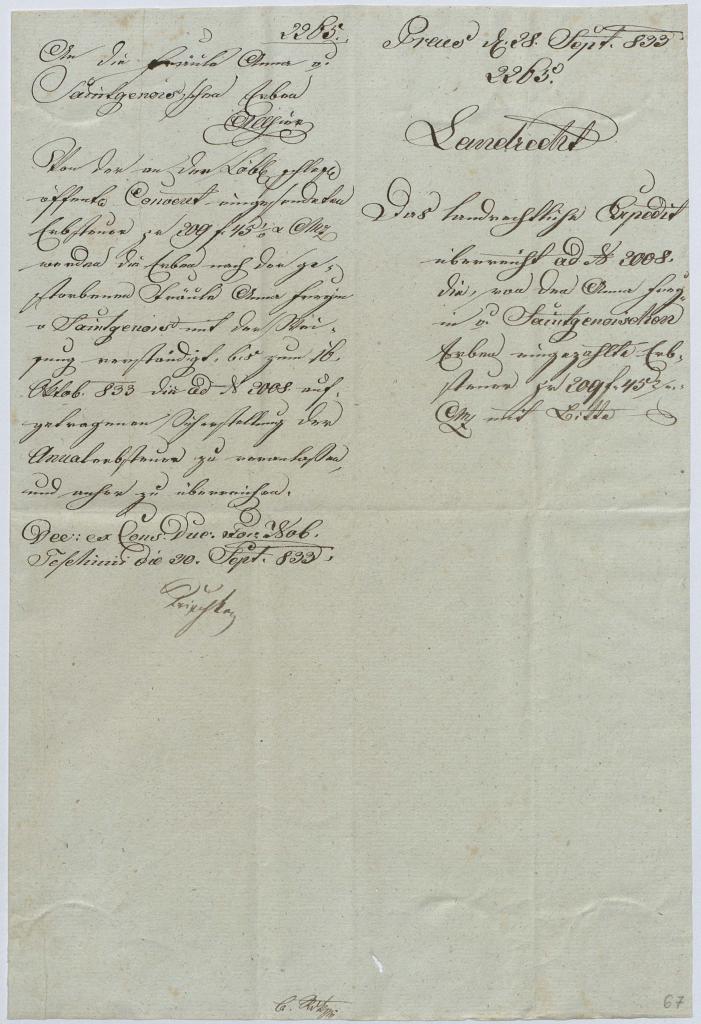 2265.
An die Fräule Anna v.
Saintgenoisschen Erben
Von der an den Löbl. schles.
öffentl. Convent eingesendeten
Erbsteuer pr 209 f. 45 x CMz
werden die Erben nach der ge-
storbenen Fräule Anna Freyin
v Saintgenois mit der Wei-
sung verständigt, bis zum 16.
Oktob. 833 die ad N 2008 auf-
getragenen Sicherstellung der
Anualerbsteuer zu veranlassen,
und anher zu überreichen.
Dec: ex Cons. Duc. Nob.
Teschinii die 30. Sept. 833.
Praes d. 28. Sept. 833
2265.
Landrecht
Das landrechtliche Expedit
überreicht ad N 2008.
die, von den Anna Frey-
in v. Saintgenoisschen
Erben eingezahlte Erb-
steuer pr 209 f. 45
CMz mit Bitte
67